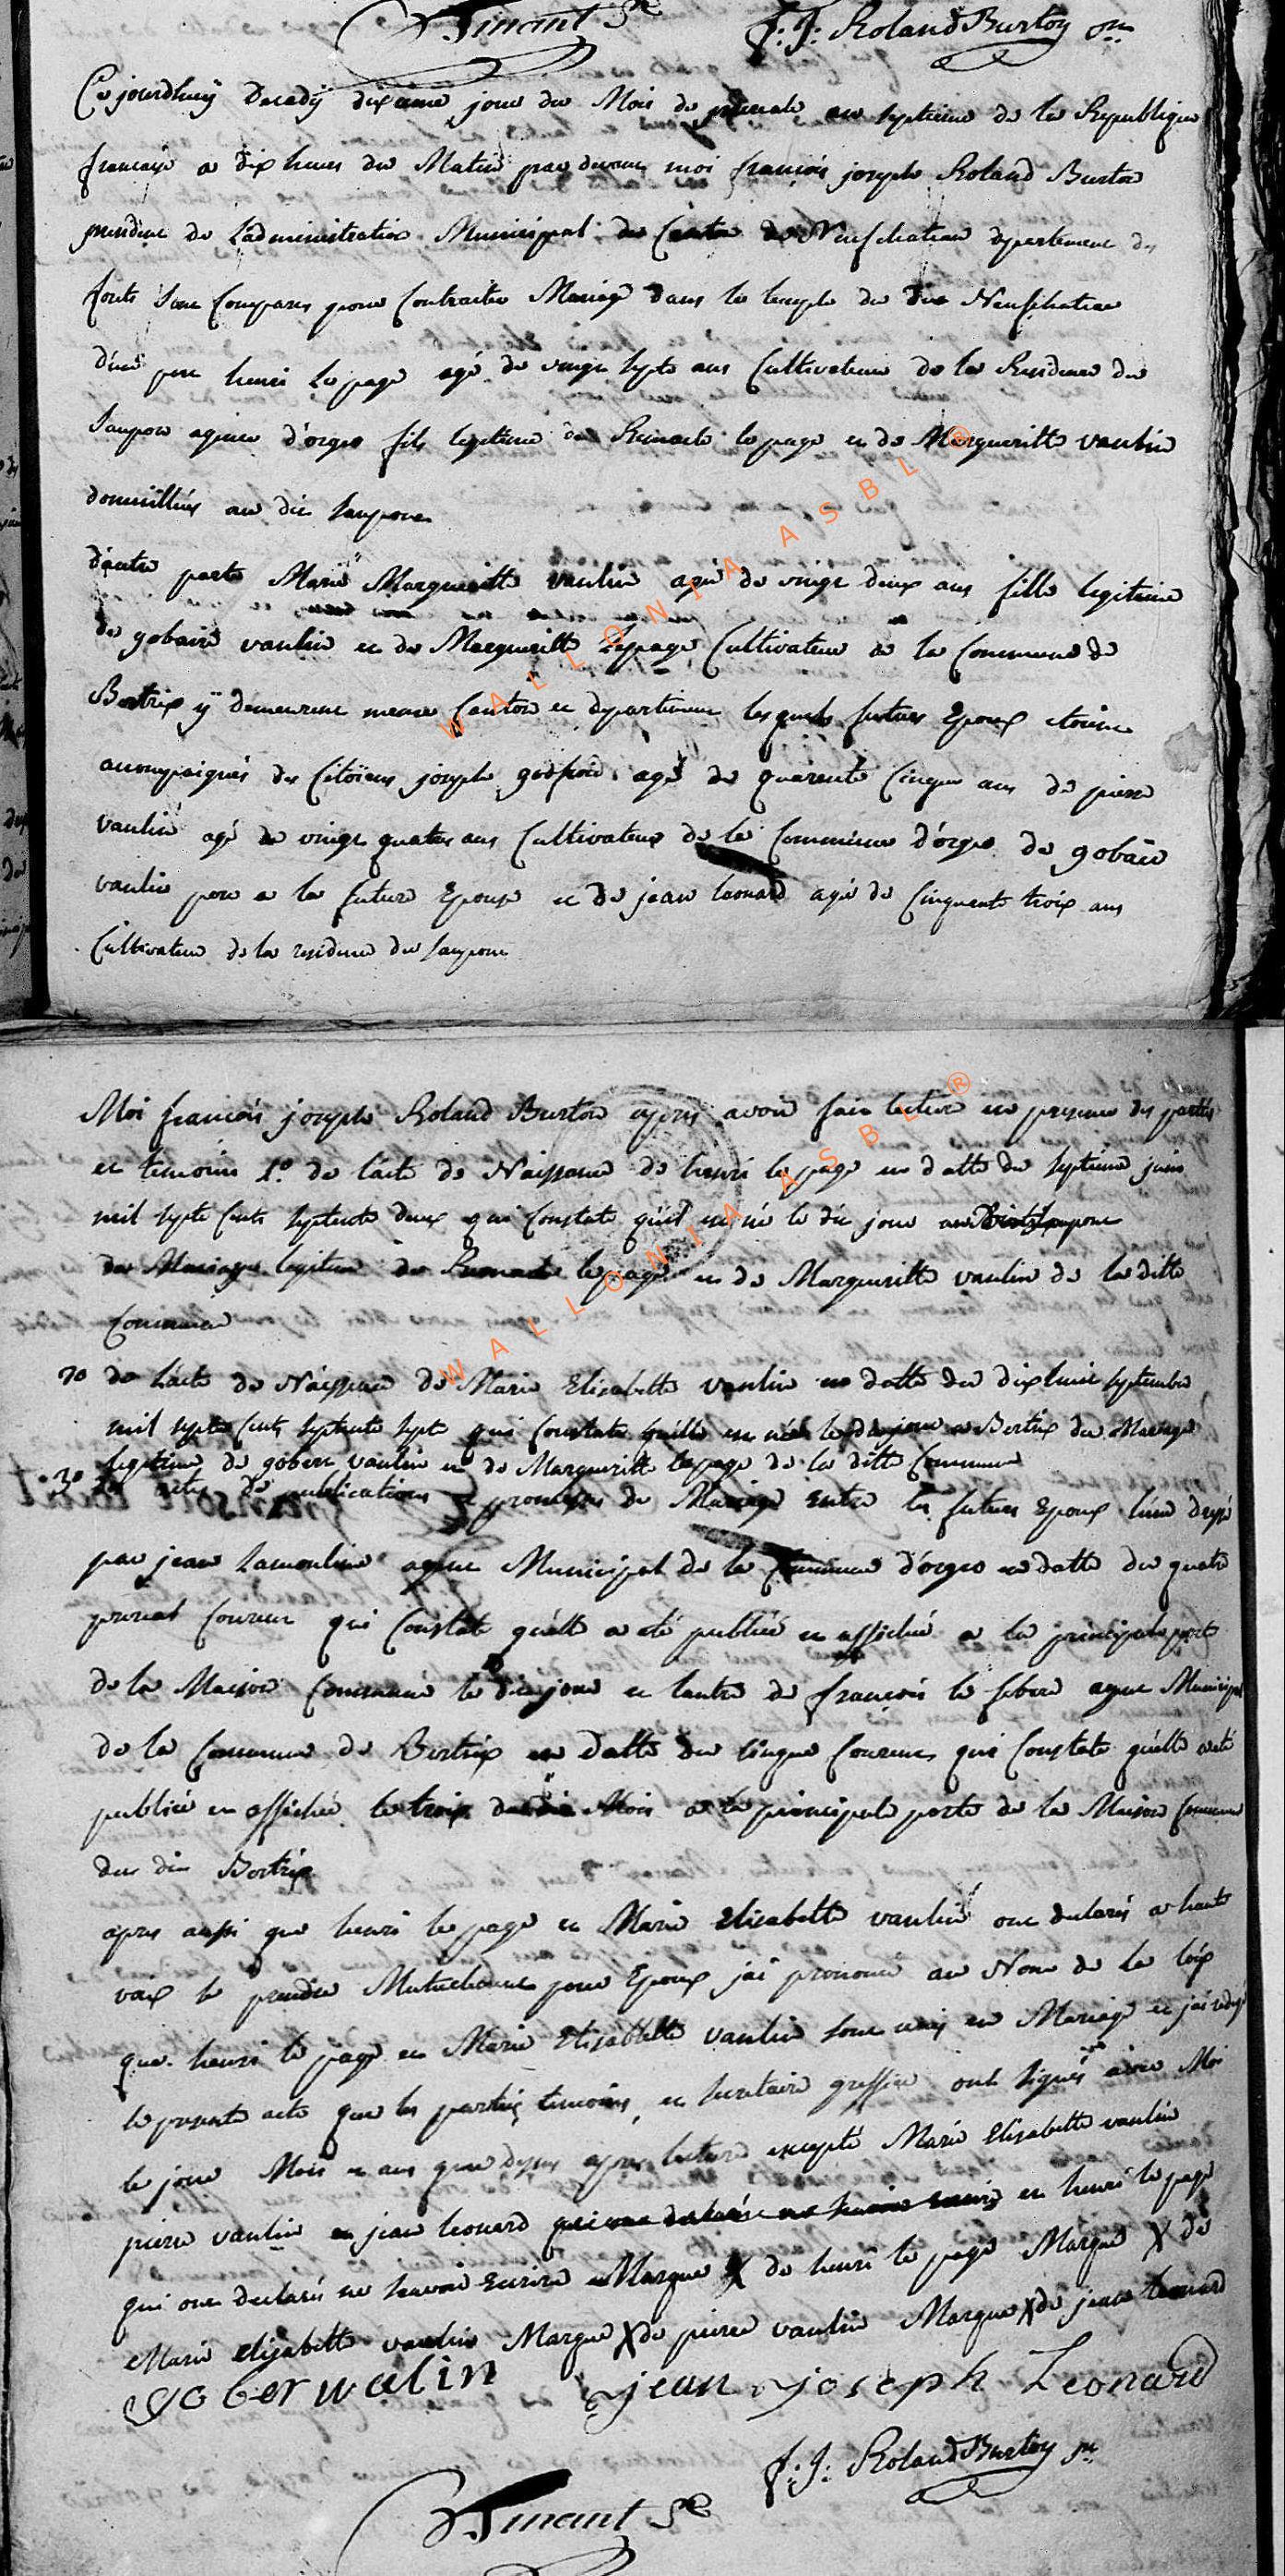 Dinant Sre F: J: Roland Burton pnt
Ce jourdhuÿ Decadÿ dixieme jour du Mois de prerial an septieme de la Republique
francaise a dix heures du Matin par devant moi francois joseph Roland Burton
president de L'administration Municipal du Canton de Neufchateau departement des
forets sont Comparus pour Contracter Mariage dans le temple du dit Neufchateau
d'une part henri Le page agé de vingt septe ans Cultivateur de la Residence de
Saupon agence d'orgeo fils legitime de Remacle le page et de Margueritte vaulin
domicilliés au dit Saupon
d'autre parte Marie Margueritte vaulin agé de vingt deux ans fille legitime
de gobair vaulin et de Margueritte Lepage Cultivateur de la Commune de
Bertrix ÿ demeurent meme Canton et departement lesquels futurs Epoux etoient
accompaignés des Citoiens joseph godfroid agé de quarente Cinque ans de pierre
vaulin agé de vingt quatre ans Cultivateur de la Commune d'orgeo de gobair
vaulin pere a la future Epouse et de jean leonard agé de Cinquente troix ans
Cultivateur de la residence de Saupon
Moi francois joseph Roland Burton apres avoir fait lecture en presence des parties
et temoins 1o. de l'acte de Naissance de henri le page en datte du septieme juin
mil septe Cents septente deux qui Constate qu'il est né le dit jour au Saupon
du Mariage legitime de Remacle le page et de Margueritte vaulin de la ditte
Commune
2o de L'acte de Naissance de Marie Elisabette vaulin en datte du dixhuit septembre
mil septe Cents septente septe qui Constate qu'elle est née le dit jour a Bertrix du Mariage
legitime de gobert vaulin et de Margueritte lepage de la ditte Commune
3o des actes de publications et promesses de Mariage Entre les futurs Epoux l'une dressé
par jean Lamouline agent Municipal de la Commune d'orgeo en datte du quatre
prerial Courent qui Constate qu'elle a eté publiée et affichée a la principale porte
de la Maison Commune le dit jour et lautre de francois le febvre agent Municipal
de la Commune de Bertrix en datte du Cinque Courent qui Constate qu'elle a eté
publiée et affichée le troix du dit Mois a la principale porte de la Maison Commune
du dit Bertrix
apres aussi que henri le page et Marie Elisabette vaulin ont declarés a haute
voix se prendre Mutuelement pour Epoux jai prononcé au Nom de la loix
que henri le page et Marie Elisabette vaulin sont unis en Mariage et jai redigé
le presente acte que les parties temoins et secretaire greffier ont signés avec Moi
le jour Mois et ans que dessus apres lecture excepté Marie Elisabette vaulin
pierre vaulin et jean leonard qui ont declarés ne scavoir ecrire et henri le page
qui ont declarés ne scavoir Ecrire Marque X de henri le page Marque X de
Marie Elisabette vaulin Marque X de pierre vaulin Marque X de jean leonard
gober walin jean joseph Leonard
F: J: Roland Burton pnt
Dinant Sre
WALLONIA ASBL ®
WALLONIA ASBL ®